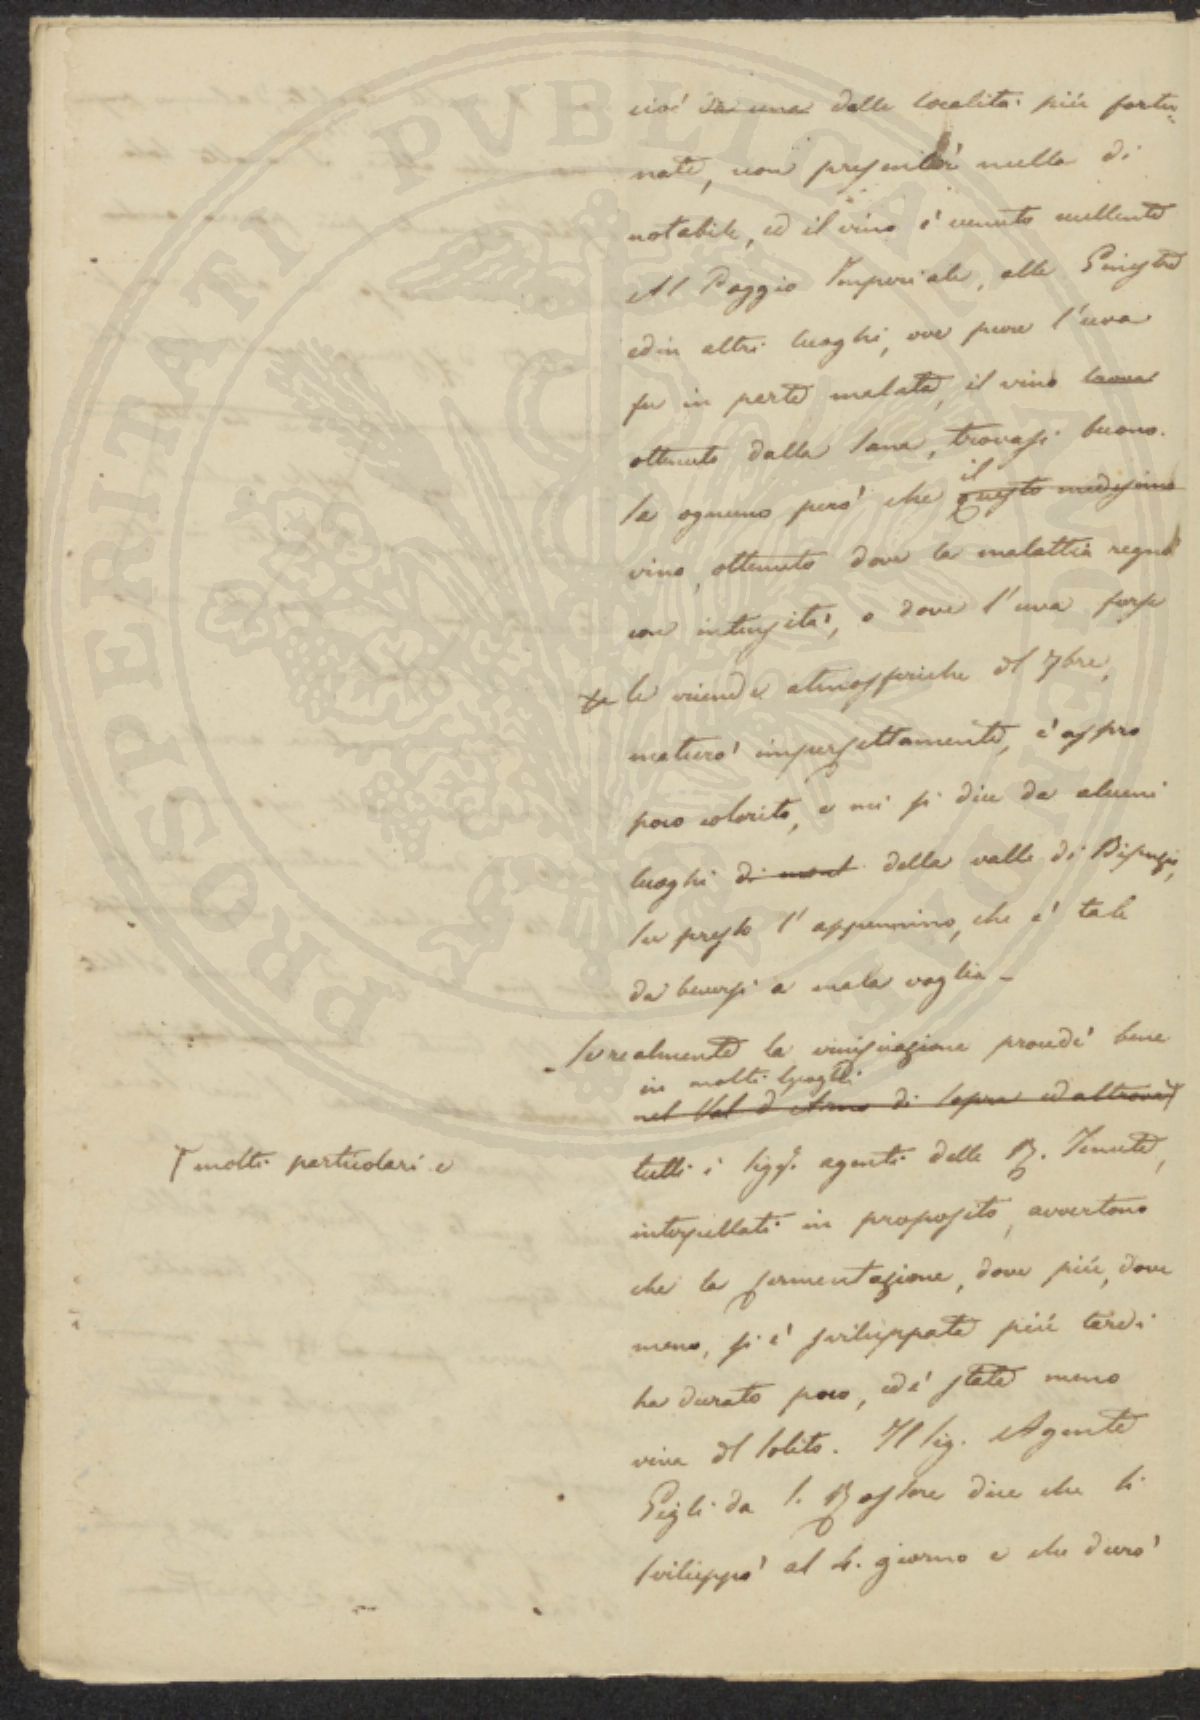 cioè da una delle località più fortu-
nate, non presentò nulla di
notabile, ed il vino è venuto eccellente
Al Poggio Imperiale, alle Ginestre
ed in altri luoghi, ove pure l'uva
fu in parte malata, il vino
ottenuto dalla sana, trovasi buono.
Sa ognuno però che questo medesimo
il
vino, ottenuto dove la malattia regnò
con intensità, o dove l'uva forse
le vicende atmosferiche del 7bre,
maturò imperfettamente, è aspro
poco colorito, e mi si dice da alcuni
luoghi di mont della valle di Bisenzio,
su presso l'appennino, che è tale
da beversi a mala voglia -
Se realmente la vinificazione procedè bene
in molti luoghi
nel Val d'Arno di sopra ed altrove
molti particolari e
tutti i sigg. agenti delle R. Tenute,
interpellati in proposito, avvertono
che la fermentazione, dove più, dove
meno, si è sviluppata più tardi
ha durato poco, ed è stata meno
viva del solito. Il sig. Agente
Gigli da S. Rossore dice che si
sviluppò al 4. giorno e che durò
PROSPERITATI PVBLICAE AVGENDAE